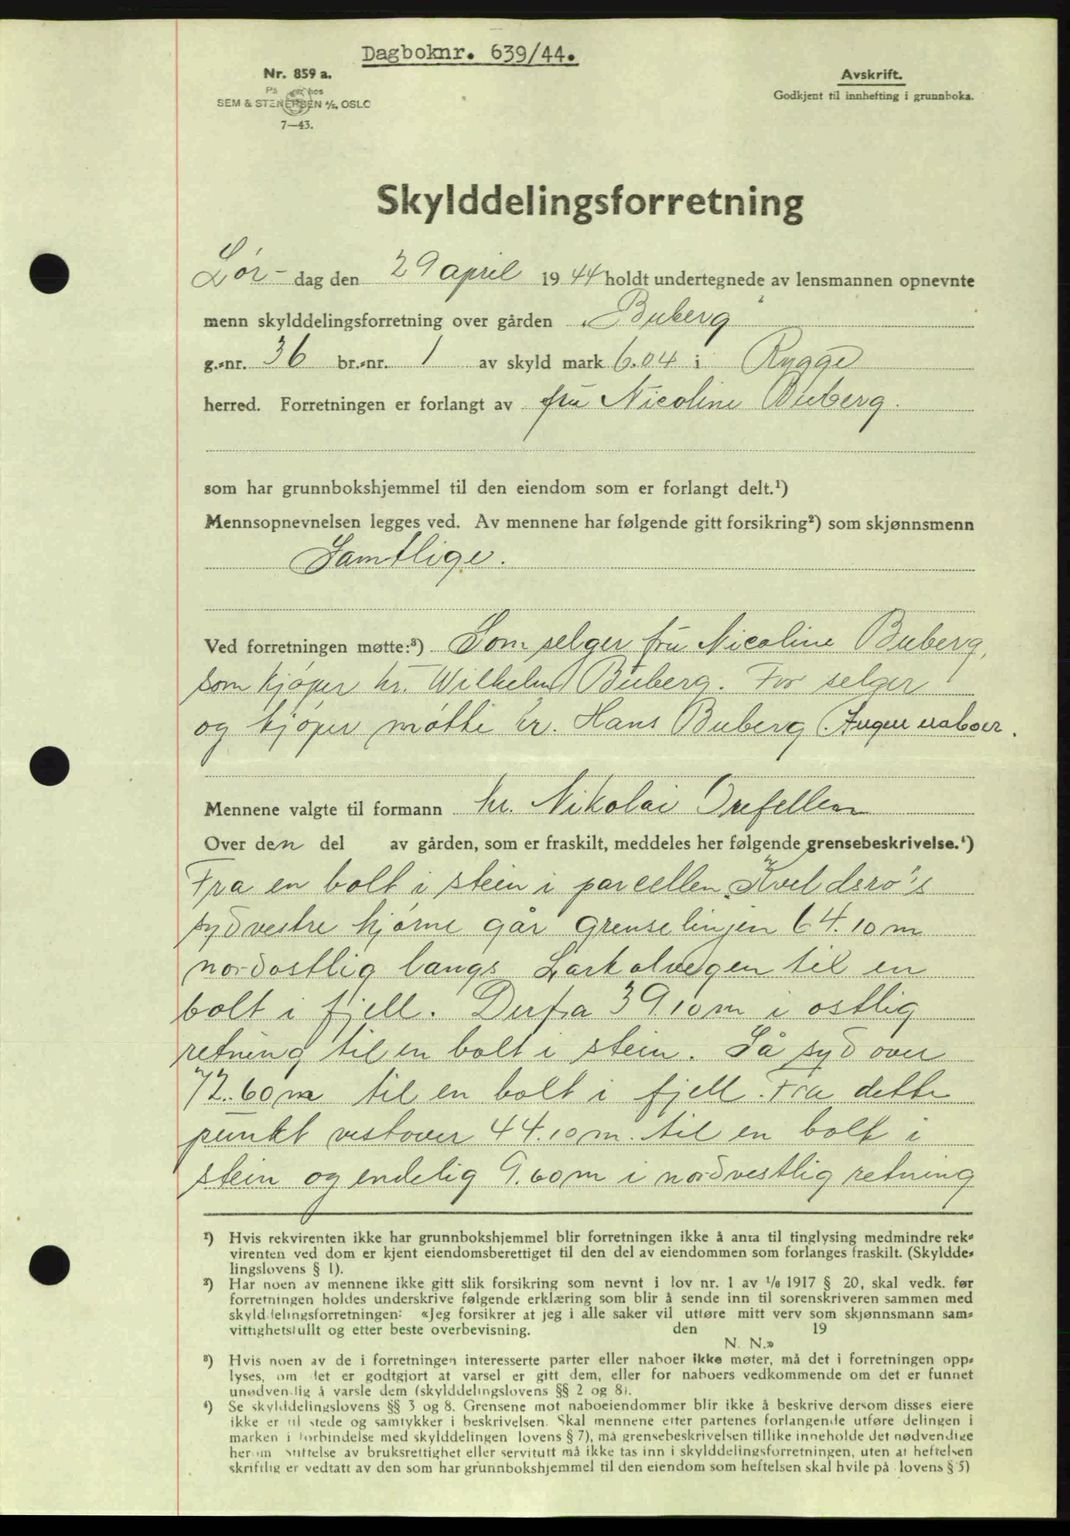 Dagboknr. 639/44.
Nr. 859 a.
SEM & STENERSEN A/S, OSLO
7—43.
Avskrift.
Godkjent til innhefting i grunnboka.
Skylddelingsforretning
Lør- dag den 29 april 1944 holdt undertegnede av lensmannen opnevnte
menn skylddelingsforretning over gården „Buberg"
g.-nr. 36 br.-nr. 1 av skyld mark 6.04 i Rygge
herred. Forretningen er forlangt av fru Nicoline Buberg.
som har grunnbokshjemmel til den eiendom som er forlangt delt.¹)
Mennsopnevnelsen legges ved. Av mennene har følgende gitt forsikring²) som skjønnsmenn
Samtlige.
Ved forretningen møtte:³) Som selger fru Nicoline Buberg,
som kjøper hr. Wilhelm Buberg. For selger
og kjøper møtte hr. Hans Buberg. Ingen naboer.
Mennene valgte til formann hr. Nikolai
Over den del av gården, som er fraskilt, meddeles her følgende grensebeskrivelse.⁴)
Fra en bolt i stein i parcellen „Kveldsro"s
sydvestre hjørne går grenselinjen 64.10 m
nordostlig langs Larkolvegen til en
bolt i fjell. Derfra 39.10 m i ostlig
retning til en bolt i stein. Så syd over
72.60 m til en bolt i fjell. Fra dette
punkt vestover 44.10 m. til en bolt i
stein og endelig 9.60 m i nordvestlig retning
¹) Hvis rekvirenten ikke har grunnbokshjemmel blir forretningen ikke å anta til tinglysing medmindre rek-
virenten ved dom er kjent eiendomsberettiget til den del av eiendommen som forlanges fraskilt. (Skyldde-
lingslovens § 1).
²) Har noen av mennene ikke gitt slik forsikring som nevnt i lov nr. 1 av 1/6 1917 § 20, skal vedk. før
forretningen holdes underskrive følgende erklæring som blir å sende inn til sorenskriveren sammen med
skylddelingsforretningen: «Jeg forsikrer at jeg i alle saker vil utføre mitt verv som skjønnsmann sam-
vittighetsfullt og etter beste overbevisning. den 19
N. N.»
³) Hvis noen av de i forretningen interesserte parter eller naboer ikke møter, må det i forretningen opp-
lyses, om det er godtgjort at varsel er gitt dem, eller for naboers vedkommende om det er funnet
unødvendig å varsle dem (skylddelingslovens §§ 2 og 8).
⁴) Se skylddelingslovens §§ 3 og 8. Grensene mot naboeiendommer blir ikke å beskrive dersom disses eiere
ikke er til stede og samtykker i beskrivelsen. Skal mennene etter partenes forlangende utføre delingen i
marken i forbindelse med skylddelingen lovens § 7), må grensebeskrivelsen tillike inneholde det nødvendige
herom Stiftelse av bruksrettighet eller servitutt må ikke tas inn i skylddelingsforretningen, uten at heftelsen
skriftlig er vedtatt av den som har grunnbokshjemmel til den eiendom som heftelsen skal hvile på lovens § 5)